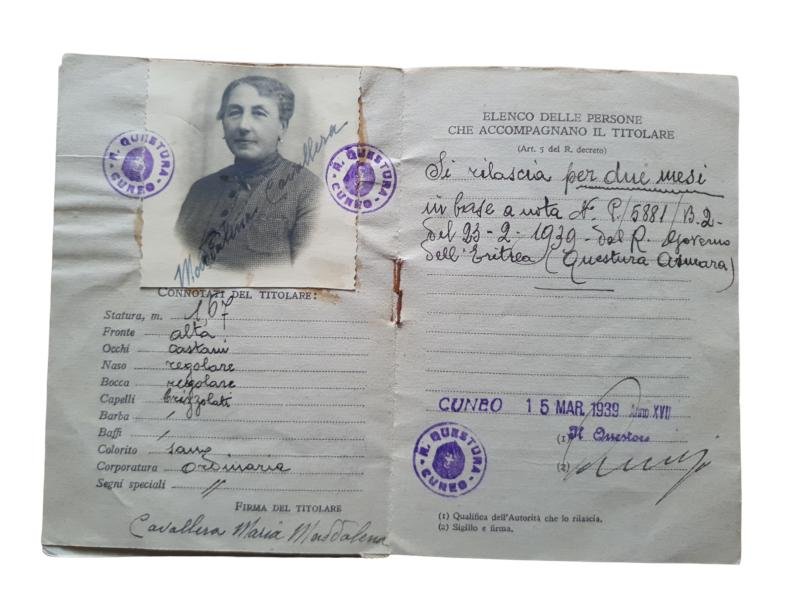 R. QUESTURA CUNEO
Maddalena Cavallera
R. QUESTURA CUNEO
CONNOTATI DEL TITOLARE:
Statura, m. 1,67
Fronte alta
Occhi castani
Naso regolare
Bocca regolare
Capelli brizzolati
Barba /
Baffi /
Colorito sano
Corporatura ordinaria
Segni speciali //
FIRMA DEL TITOLARE
Cavallera Maria Maddalena
ELENCO DELLE PERSONE
CHE ACCOMPAGNANO IL TITOLARE
(Art. 5 del R. decreto)
Si rilascia per due mesi
in base a nota N. P/5881/B.2-
del 23-2-1939- del R. Governo
dell'Eritrea (Questura Asmara)
CUNEO 15 MAR. 1939 Anno XVII
(1) Il Questore
(2)
R. QUESTURA CUNEO
(1) Qualifica dell'Autorità che lo rilascia.
(2) Sigillo e firma.